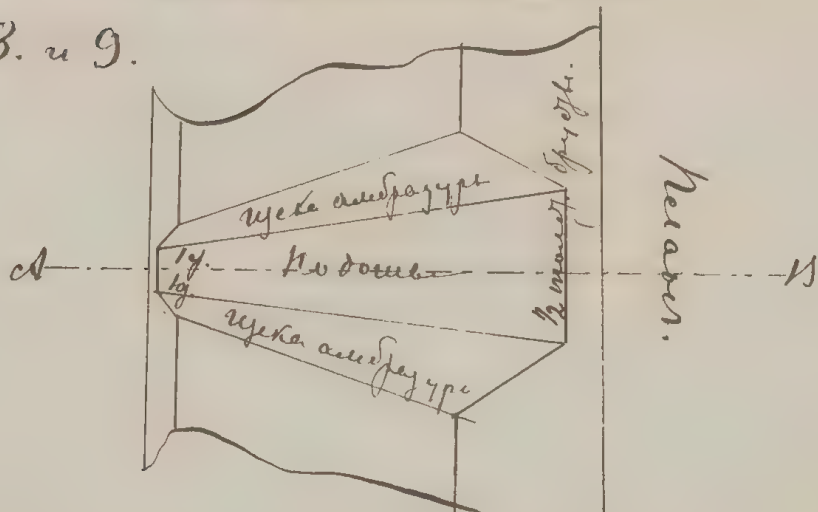 В. и Э.
щека амбразуры
1 ф.
1 ф.
Подошва
А
В
щека амбразуры
½ толщ. бруств.